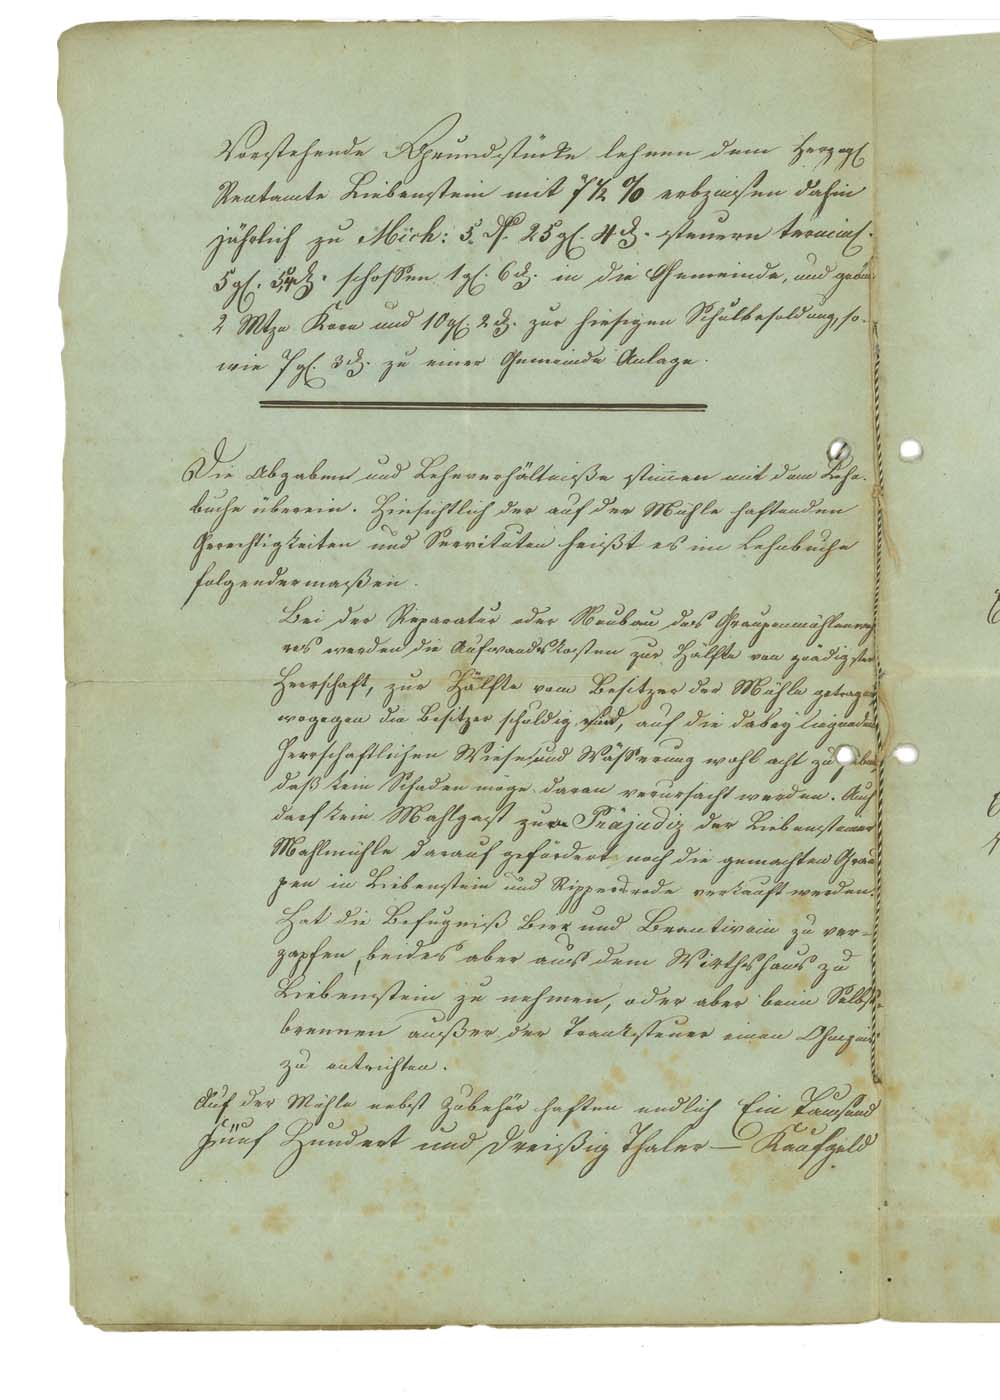 Vorstehende Grundstücke lehnen dem Herzogl
Rentamte Liebenstein mit 7½ % erbzinsen dahin
jährlich zu Mich: 5 rh. 25 gl. 4 d. steuern terminl.
5 gl. d. schossen 1 gl. 6 d. in die Gemeinde, und
2 Mtzn Korn und 10 gl. 2 d. zur hiesigen Schulbesoldung, so-
wie 7 gl. 3 d. zu einer Gemeinde Anlage.
Die Abgaben und Lehnverhältniße stimen mit dem Lehn-
buche überein. Hinsichtlich der auf der Mühle haftenden
Gerechtigkeiten und Servituten heißt es im Lehnbuche
folgendermaßen.
Bei der Reparatur oder Neubau des
werden die Aufwandskosten zur Hälfte von gnädigster
Herrschaft, zur Hälfte vom Besitzer der Mühle getragen
wogegen die Besitzer schuldig sind, auf die dabey liegenden
Herrschaftlichen Wiesen und Wässerung wohl acht zu geben
daß kein Schaden möge daran verursacht werden. Auch
darf kein Mahlgast zum Präjudiz der Liebensteiner
Mahlmühle darauf gefördert noch die gemachten Grau-
pen in Liebenstein und Rippersrode verkauft werden.
Hat die Befugniß Bier und Brantwein zu ver-
zapfen, beides aber aus dem Wirthshaus zu
Liebenstein zu nehmen, oder aber beim Selbst-
brennen außer der Tranksteuer einen Ohmzins
zu entrichten.
Auf der Mühle nebst Zubehör haften endlich Ein Tausend
Fünf Hundert und Dreißig Thaler — Kaufgeld